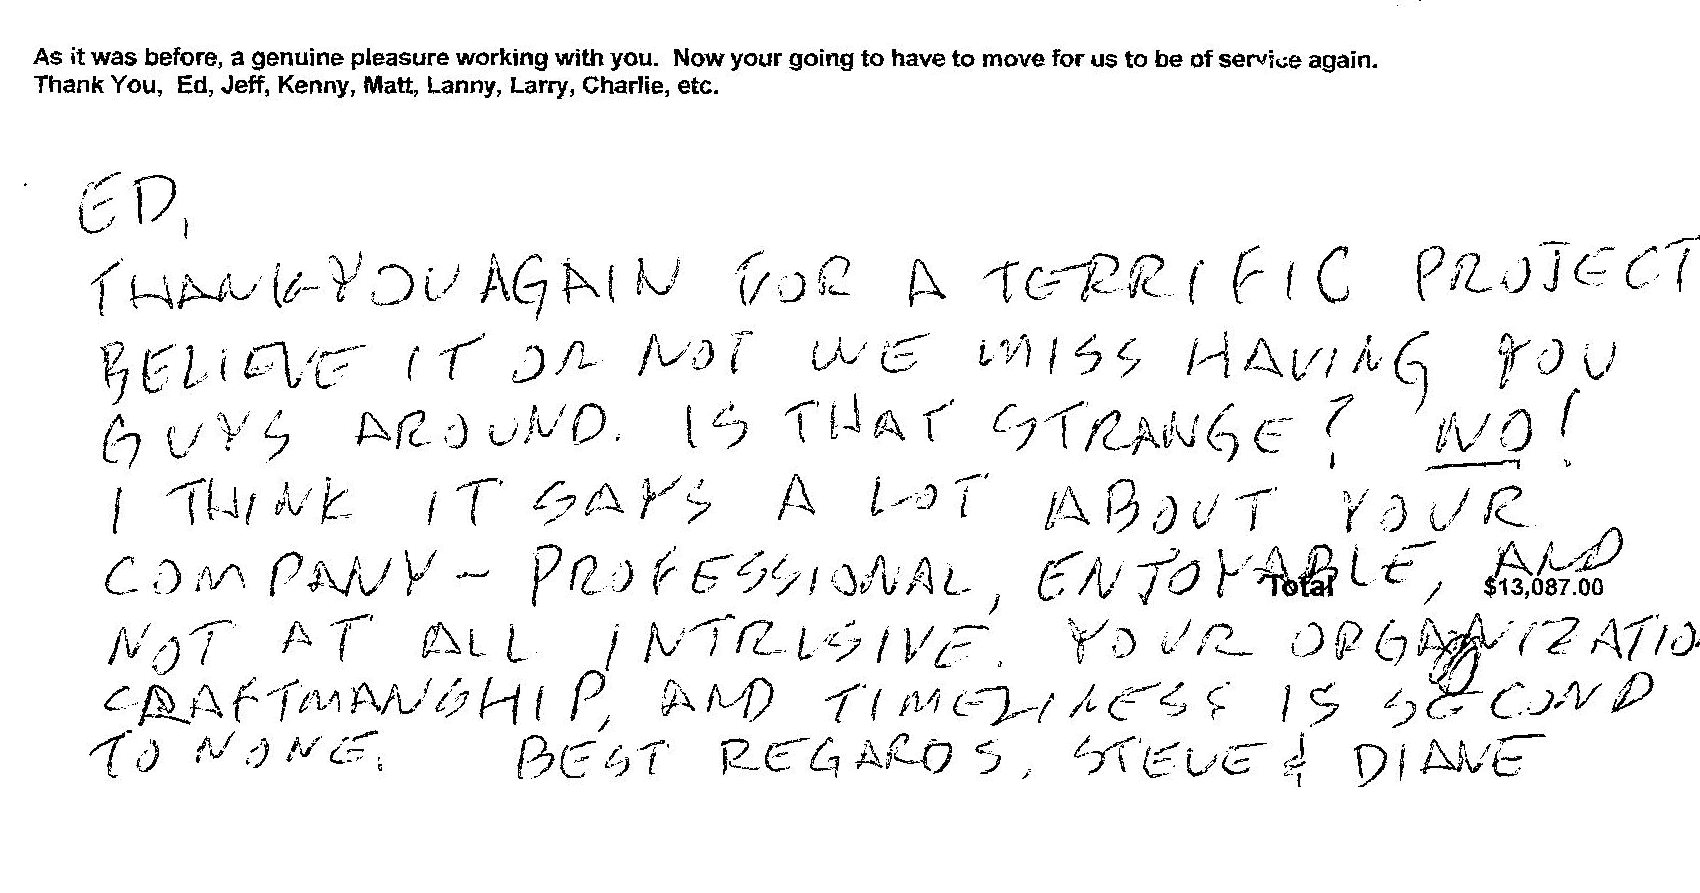 As it was before, a genuine pleasure working with you. Now your going to have to move for us to be of service again.
Thank You, Ed, Jeff, Kenny, Matt, Lanny, Larry, Charlie, etc.
ED,
THANK YOU AGAIN FOR A TERRIFIC PROJECT
BELIEVE IT OR NOT WE MISS HAVING YOU
GUYS AROUND. IS THAT STRANGE? NO!
I THINK IT SAYS A LOT ABOUT YOUR
COMPANY - PROFESSIONAL, ENJOYABLE, AND
Total $13,087.00
NOT AT ALL INTRUSIVE. YOUR ORGANIZATIO
CRAFTMANSHIP, AND TIMELINESS IS SECOND
TO NONE. BEST REGARDS, STEVE & DIANE